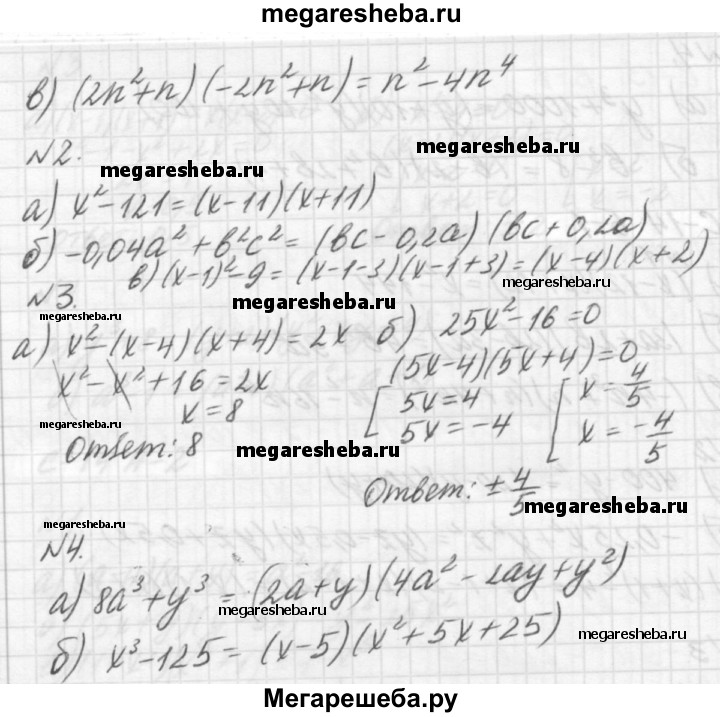 megaresheba.ru
в) (2n²+n)(-2n²+n) = n²-4n⁴
№2.
megaresheba.ru megaresheba.ru
а) x²-121=(x-11)(x+11)
б) -0,04a²+в²c²= (вc-0,2a)(вc+0,2a)
в) (x-1)²-9= (x-1-3)(x-1+3)=(x-4)(x+2)
megaresheba.ru
№3.
megaresheba.ru megaresheba.ru
а) x²-(x-4)(x+4)=2x
x²-x²+16=2x
x=8
megaresheba.ru
Ответ: 8
б) 25x²-16=0
(5x-4)(5x+4)=0
[5x=4 [x=4/5
5x=-4 x=-4/5
megaresheba.ru
Ответ: ±4/5
megaresheba.ru
megaresheba.ru
№4.
а) 8a³+y³ = (2a+y)(4a²-2ay+y²)
megaresheba.ru
б) x³-125= (x-5)(x²+5x+25)
megaresheba.ru
Мегарешеба.ру